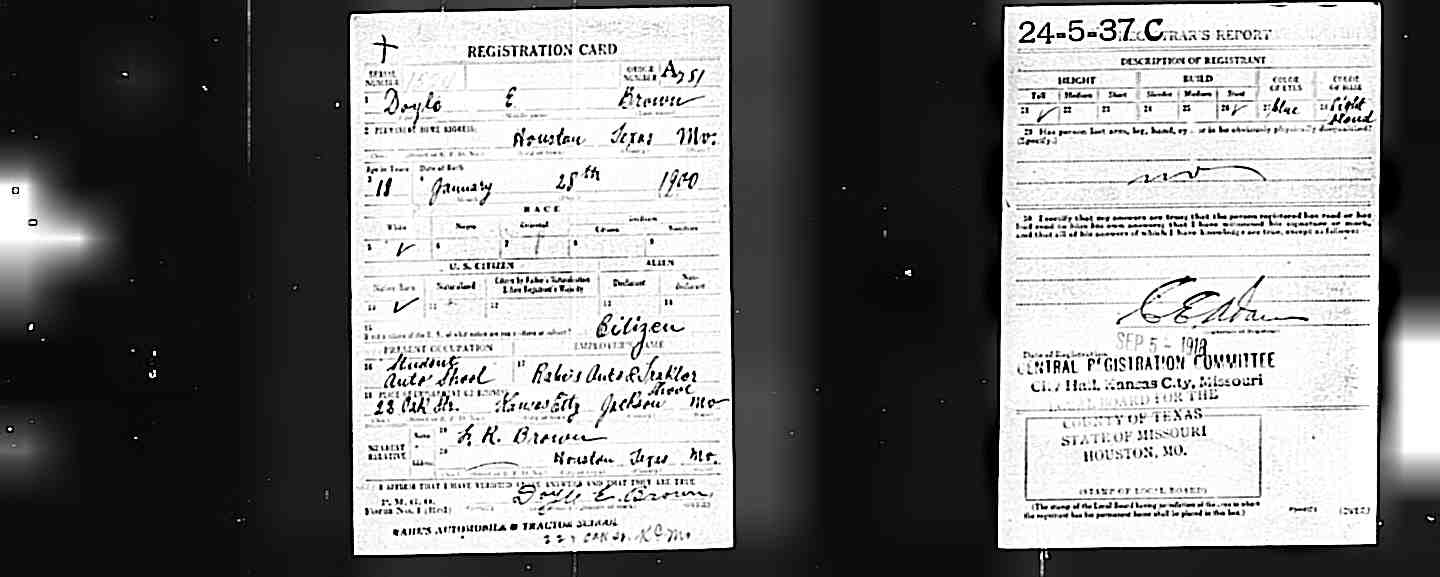 REGISTRATION CARD
SERIAL NUMBER
ORDER NUMBER A751
1 Doyle E. Brown
2 PERMANENT HOME ADDRESS:
Houston Texas Mo.
Age in Years Date of Birth
3 18 4 January 28th 1900
RACE
White Negro Oriental Indian
Citizen Noncitizen
5 ✓ 6 7 8 9
U. S. CITIZEN ALIEN
Native Born Naturalized Citizen by Father's Naturalization Before Registrant's Majority Declarant Non-declarant
10 ✓ 11 12 13 14
15
Citizen
PRESENT OCCUPATION EMPLOYER'S NAME
16 Student 17
Auto School Rahe's Auto & Traktor
School
18
22 Oak Str. Kansas City Jackson Mo
NEAREST RELATIVE
Name 19 Brown
Address 20 Houston Texas Mo.
I AFFIRM THAT I HAVE VERIFIED ABOVE ANSWERS AND THAT THEY ARE TRUE
P. M. G. O.
Form No. 1 (Red) Doyle E. Brown
RAHE'S AUTOMOBILE & TRACTOR SCHOOL
OAK St. K C Mo
24-5-37 C
REGISTRAR'S REPORT
DESCRIPTION OF REGISTRANT
HEIGHT BUILD COLOR OF EYES COLOR OF HAIR
Tall Medium Short Slender Medium Stout
21 ✓ 22 23 24 25 26 ✓ 27 blue 28 light
blond
29 Has person lost arm, leg, hand, eye, or is he obviously physically disqualified?
(Specify.)
no
30 I certify that my answers are true; that the person registered has read or has
had read to him his own answers; that I have witnessed his signature or mark,
and that all of his answers of which I have knowledge are true, except as follows:
(Signature of Registrar)
Date of Registration SEP 5 - 1918
CENTRAL REGISTRATION COMMITTEE
City Hall, Kansas City, Missouri
LOCAL BOARD FOR THE
COUNTY OF TEXAS
STATE OF MISSOURI
HOUSTON, MO.
(STAMP OF LOCAL BOARD)
(The stamp of the Local Board having jurisdiction of the area in which
the registrant has his permanent home shall be placed in this box.)
(OVER)